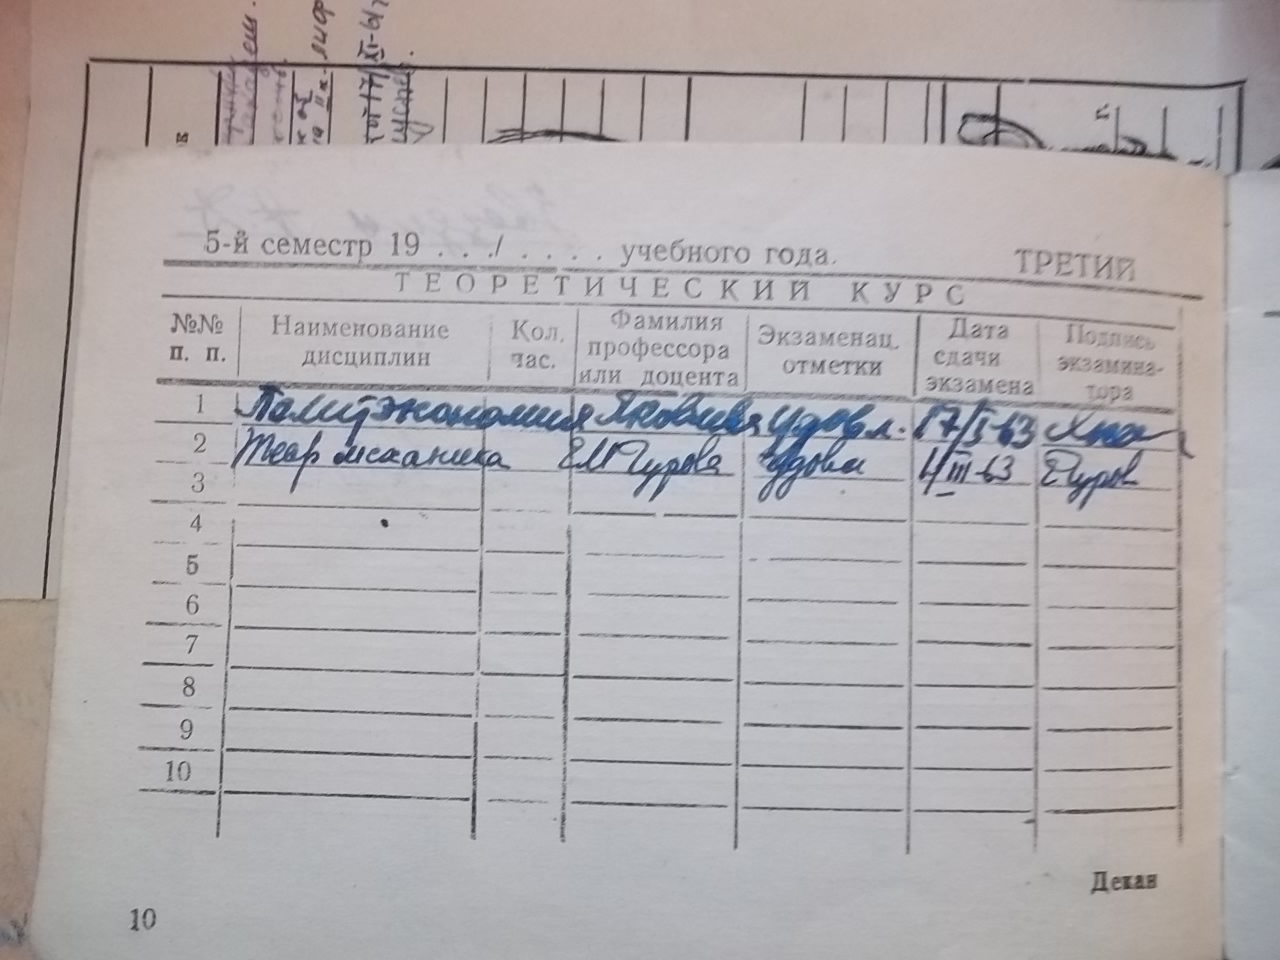 5-й семестр 19 . . ./ . . . . учебного года. ТРЕТИЙ
ТЕОРЕТИЧЕСКИЙ КУРС
№№ п. п. Наименование дисциплин Кол. час. Фамилия профессора или доцента Экзаменац. отметки Дата сдачи экзамена Подпись экзаминатора
1 Политэкономия удовл. 17/I-63
2 Теор механика удовл 4/III-63
3
4
5
6
7
8
9
10
Декан
10